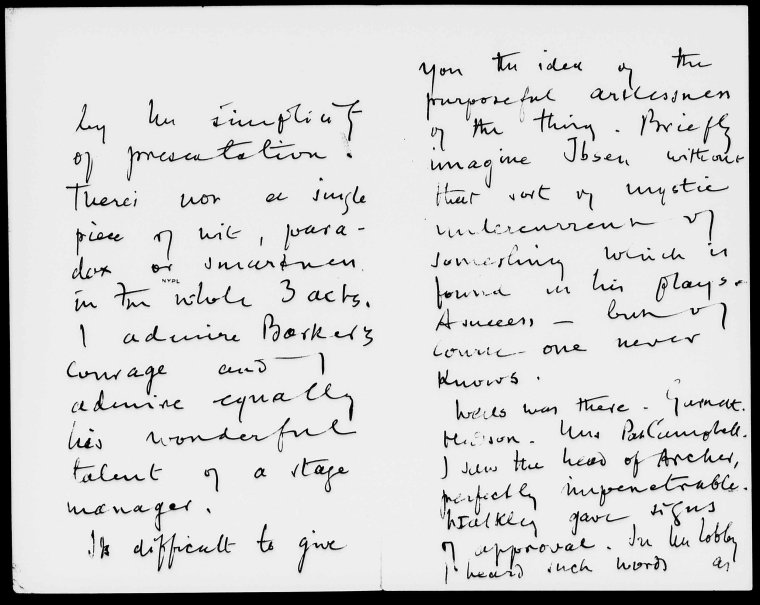 by the simplicity
of presentation.
There's not a single
piece of wit, para-
dox or smartness
NYPL
in the whole 3 acts.
I admire Barker's
courage and I
admire equally
his wonderful
talent of a stage
manager.
It's difficult to give
you the idea of the
purposeful artlessness
of the thing. Briefly
imagine Ibsen without
that sort of mystic
undercurrent of
something which is
found in his plays.
A success — but of
course one never
knows.
Wells was there. Garnett.
Hudson. Mrs Pat Campbell.
I saw the head of Archer,
perfectly impenetrable.
Walkley gave signs
of approval. In the lobby
I heard such words as